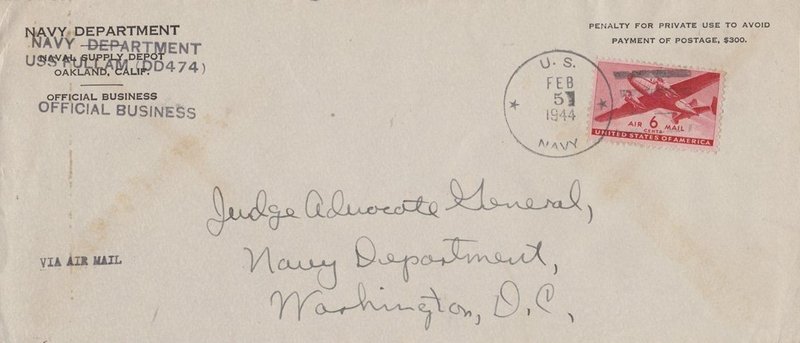 NAVY DEPARTMENT
NAVY DEPARTMENT
NAVAL SUPPLY DEPOT
USS FULLAM (DD474)
OAKLAND, CALIF.
OFFICIAL BUSINESS
OFFICIAL BUSINESS
PENALTY FOR PRIVATE USE TO AVOID
PAYMENT OF POSTAGE, $300.
U. S.
FEB
5
1944
NAVY
AIR 6 MAIL
CENTS
UNITED STATES OF AMERICA
Judge Advocate General,
Navy Department,
Washington, D.C.,
VIA AIR MAIL